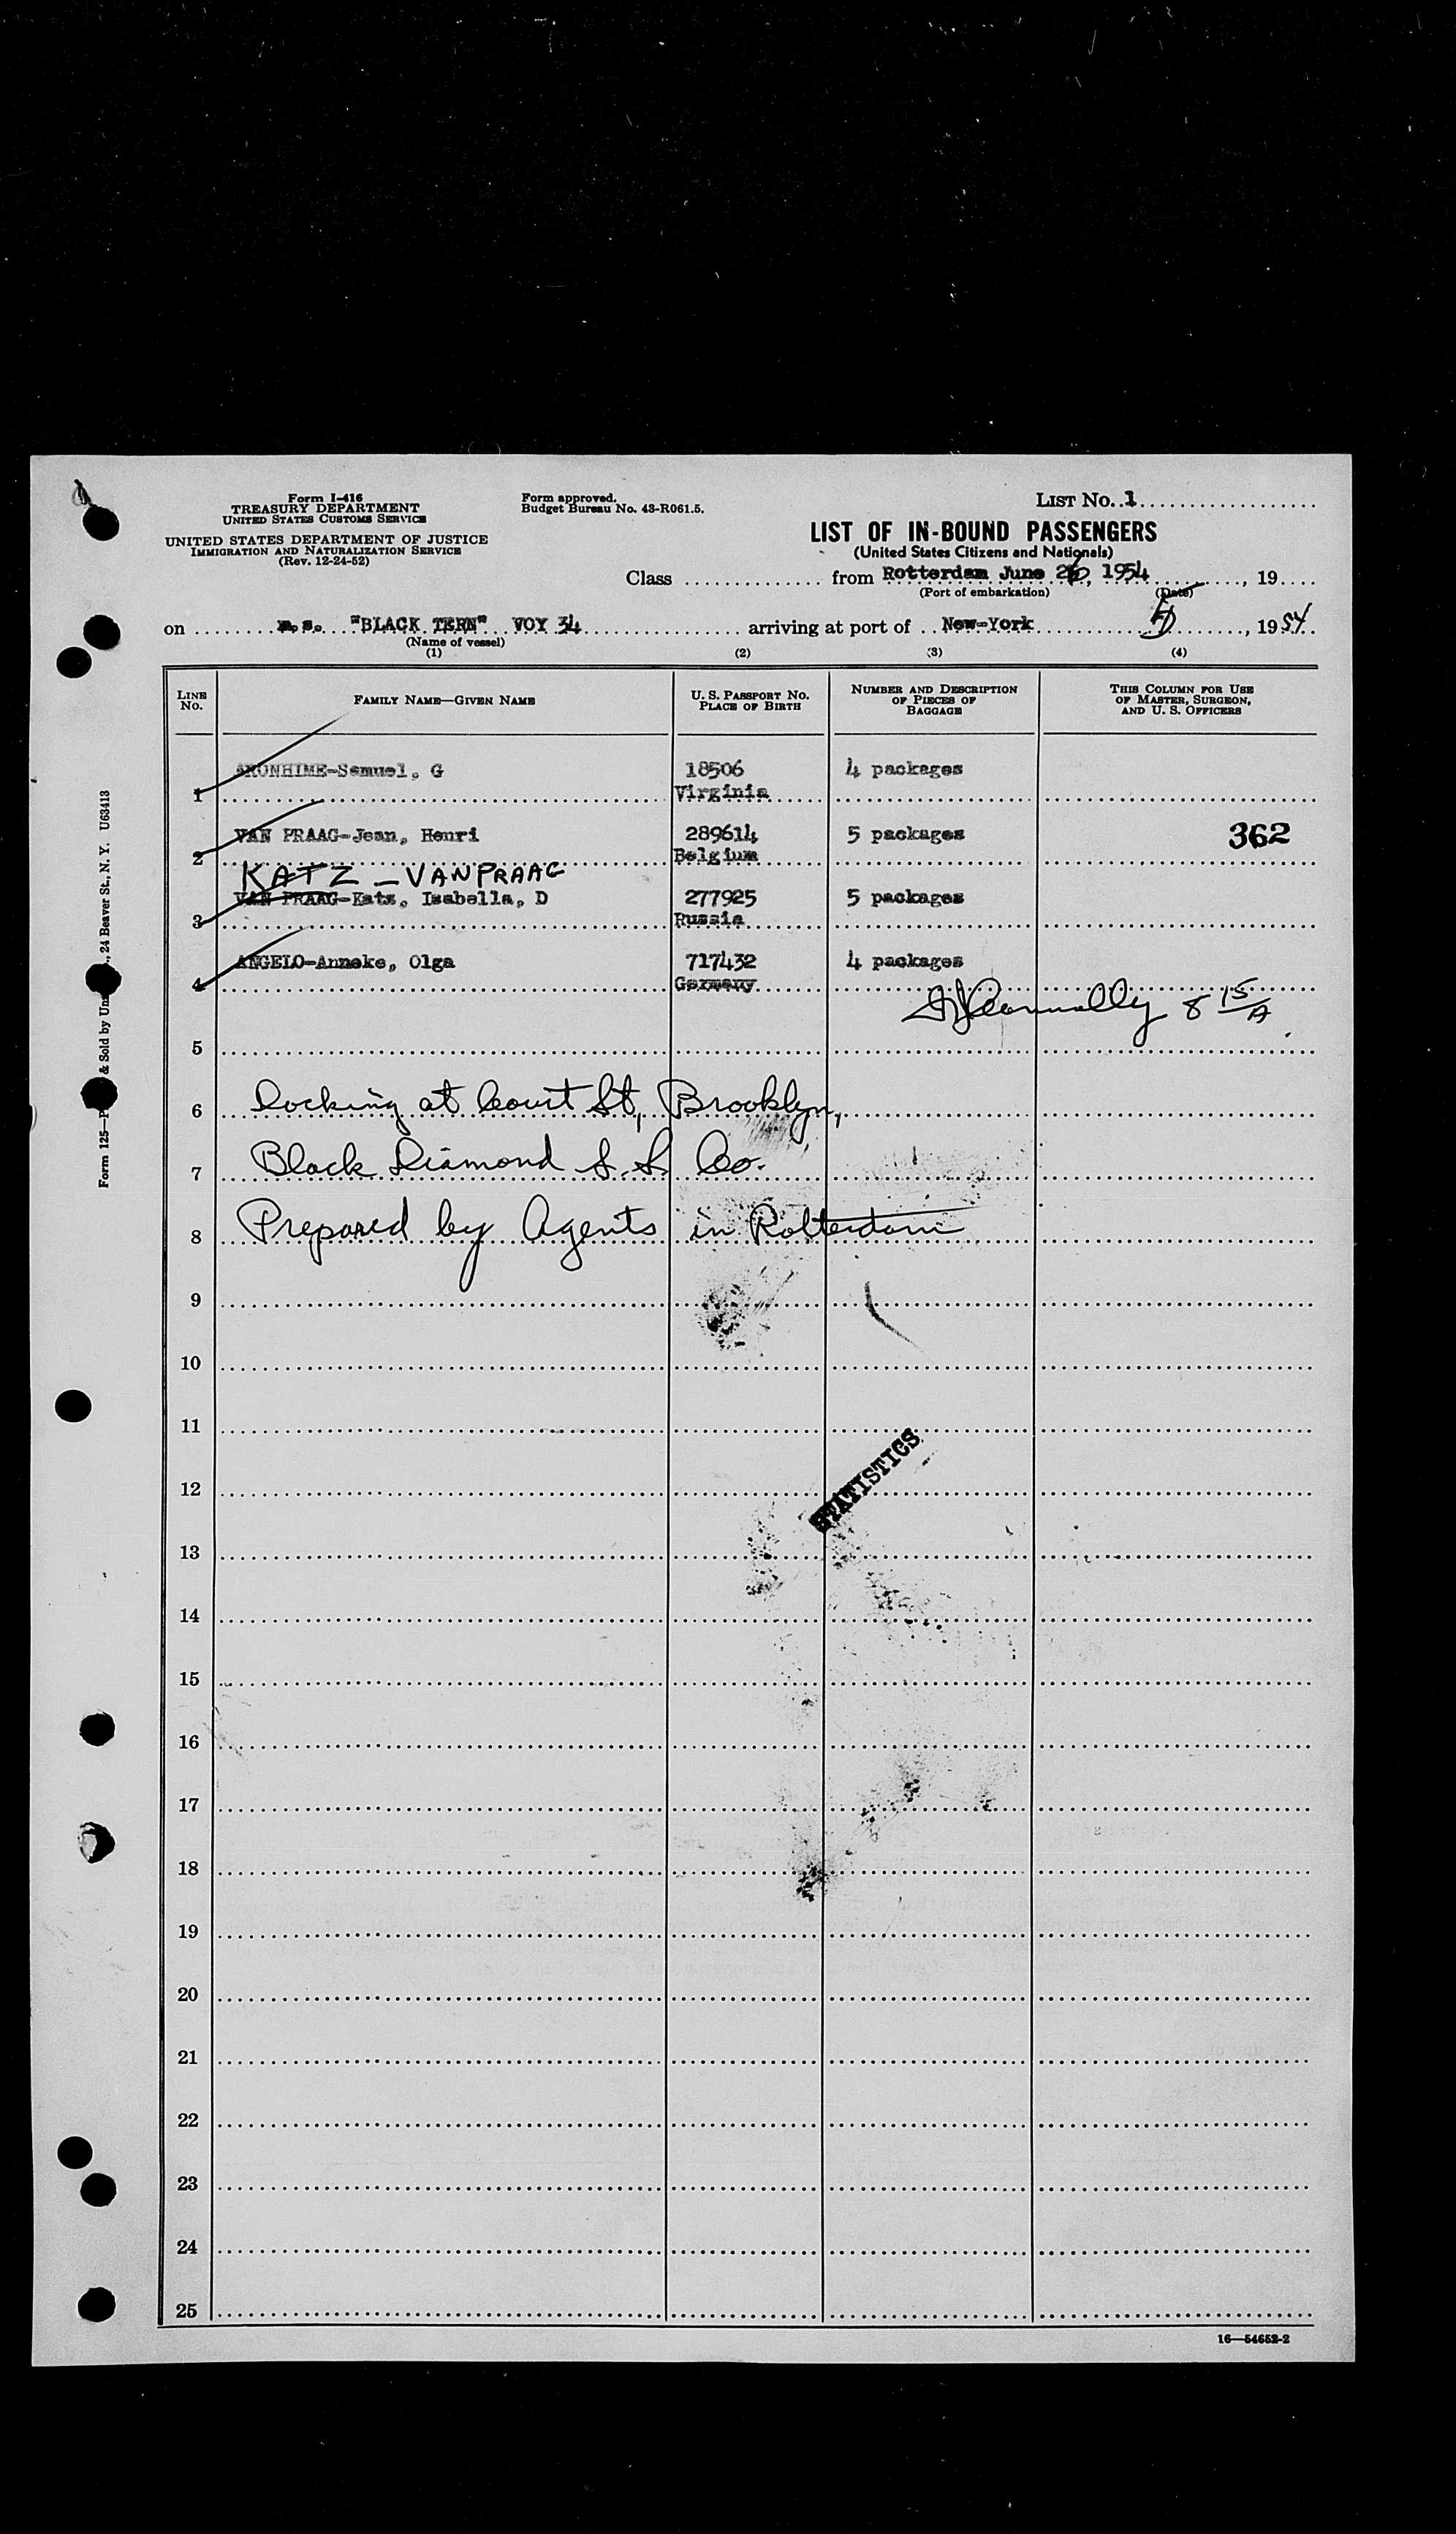 Form I-416
TREASURY DEPARTMENT
UNITED STATES CUSTOMS SERVICE
UNITED STATES DEPARTMENT OF JUSTICE
IMMIGRATION AND NATURALIZATION SERVICE
(Rev. 12-24-52)
Form approved.
Budget Bureau No. 43-R061.5.
LIST No. 1
LIST OF IN-BOUND PASSENGERS
(United States Citizens and Nationals)
Class from Rotterdam June 26, 1954, 19
(Port of embarkation) (Date)
on m.s. "BLACK TERN" VOY 34 arriving at port of New-York , 1954
(Name of vessel)
(1) (2) (3) (4)
LINE No. FAMILY NAME—GIVEN NAME U. S. PASSPORT No. PLACE OF BIRTH NUMBER AND DESCRIPTION OF PIECES OF BAGGAGE THIS COLUMN FOR USE OF MASTER, SURGEON, AND U. S. OFFICERS
ARONHIME-Samuel, G 18506 4 packages
1 Virginia
VAN PRAAG-Jean, Henri 289614 5 packages 362
2 Belgium
KATZ - VANPRAAG
VAN PRAAG-Katz, Isabella, D 277925 5 packages
3 Russia
ANGELO-Anneke, Olga 717432 4 packages
4 Germany
Connolly 8 15/A
5
6 Docking at Court St, Brooklyn,
7 Black Diamond S. S. Co.
8 Prepared by Agents in Rotterdam
9
10
11
STATISTICS
12
13
14
15
16
17
18
19
20
21
22
23
24
25
16—54652-2
Form 125—P & Sold by Unz , 24 Beaver St., N. Y. U63413